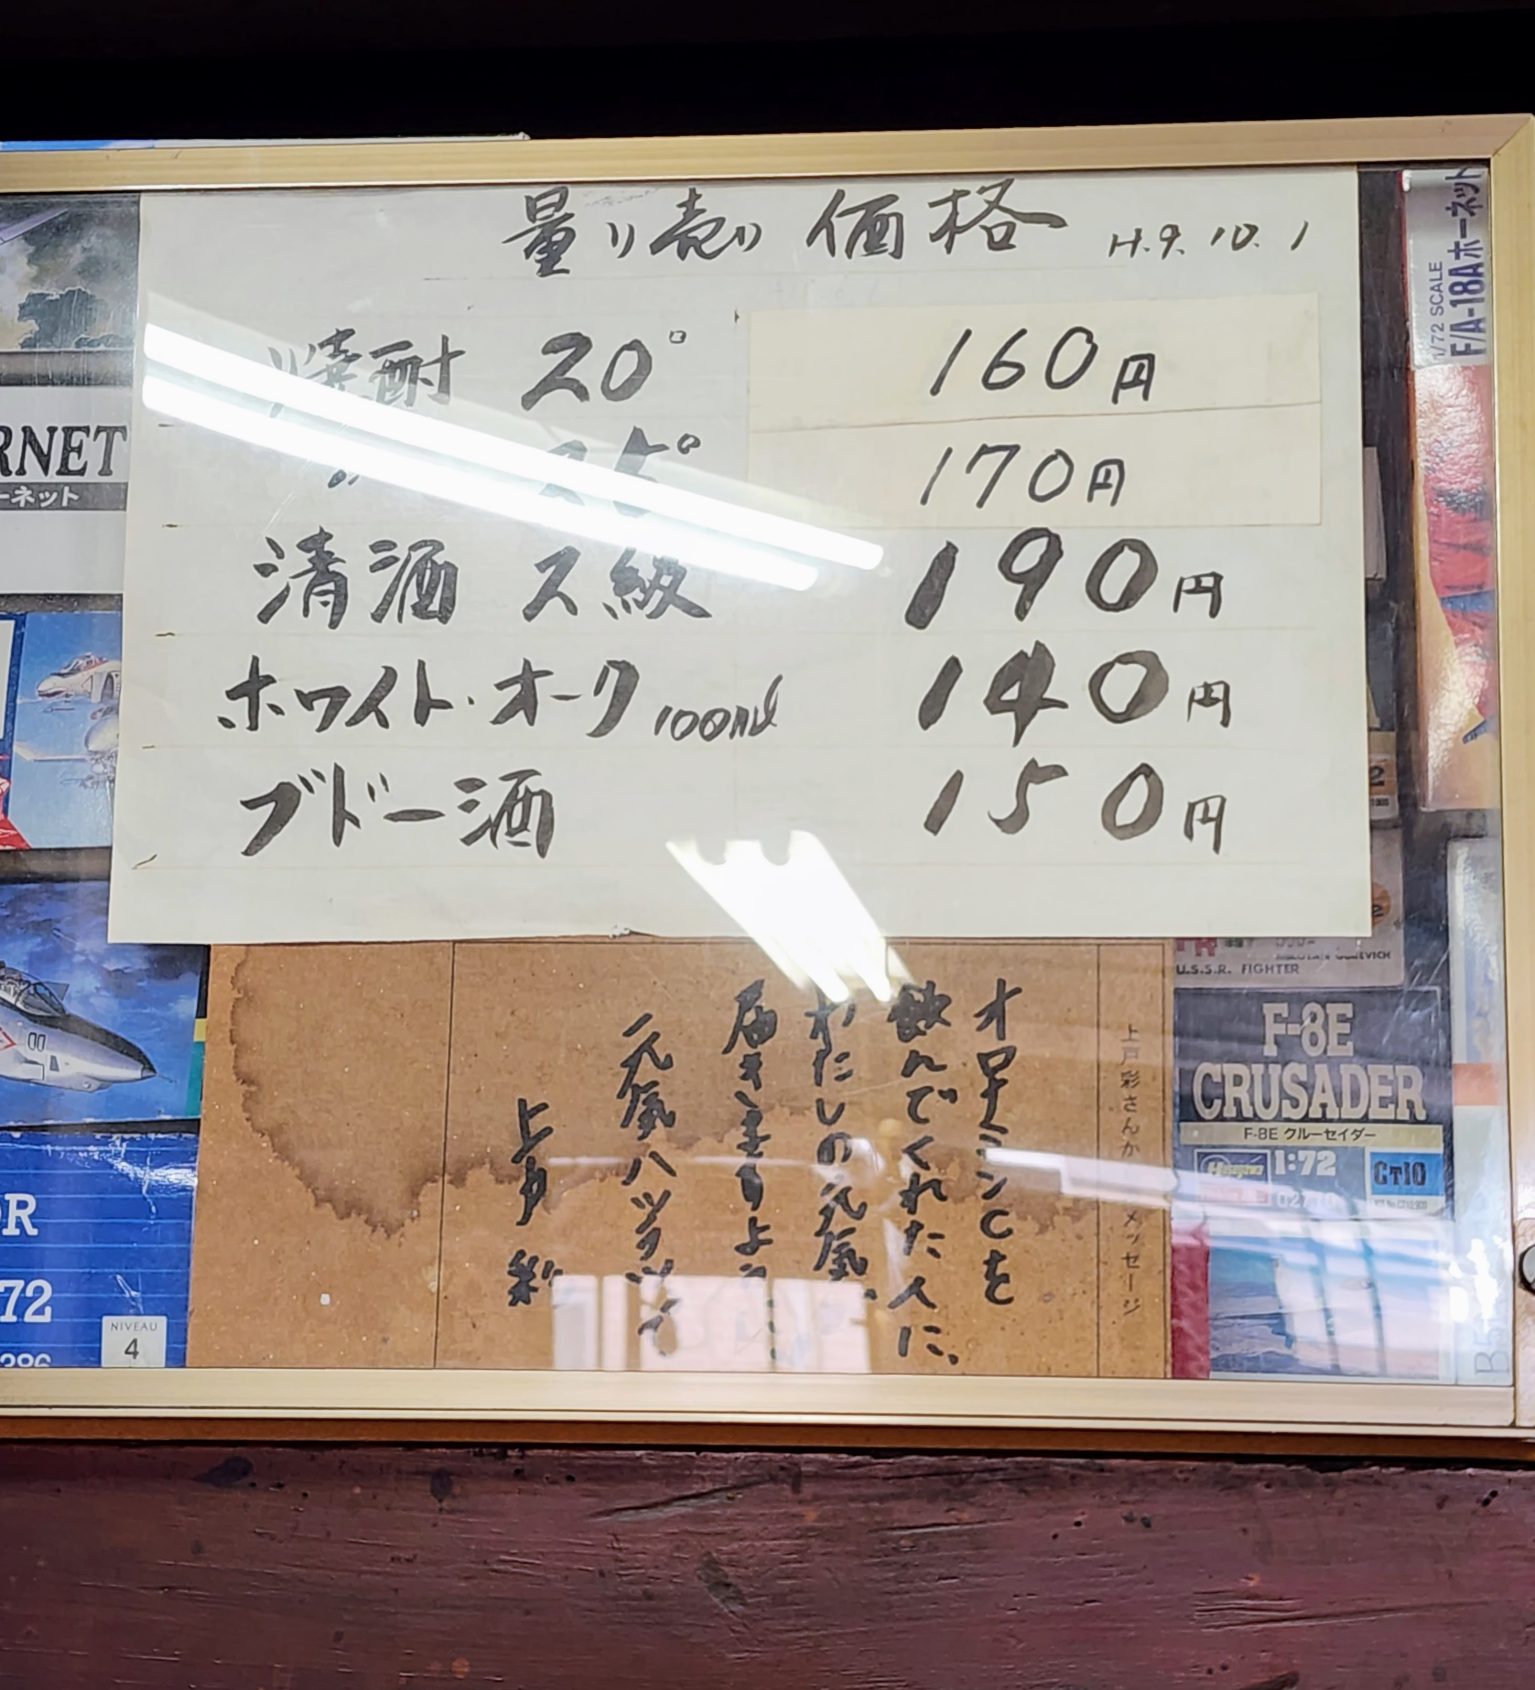 量り売り 価格 H.9.10.1
焼酎 20° 160円
〃 25° 170円
清酒 2級 190円
ホワイト・オーク 100ml 140円
ブドー酒 150円
上戸彩さんか メッセージ
オロナミンCを
飲んでくれた人に、
わたしの元気、
届きますよ
元気ハツラツ
上戸 彩
RNET
ーネット
OR
72
NIVEAU
4
1/72 SCALE
F/A-18Aホーネット
U.S.S.R. FIGHTER
F-8E
CRUSADER
F-8E クルーセイダー
Hasegawa
1:72
CT10